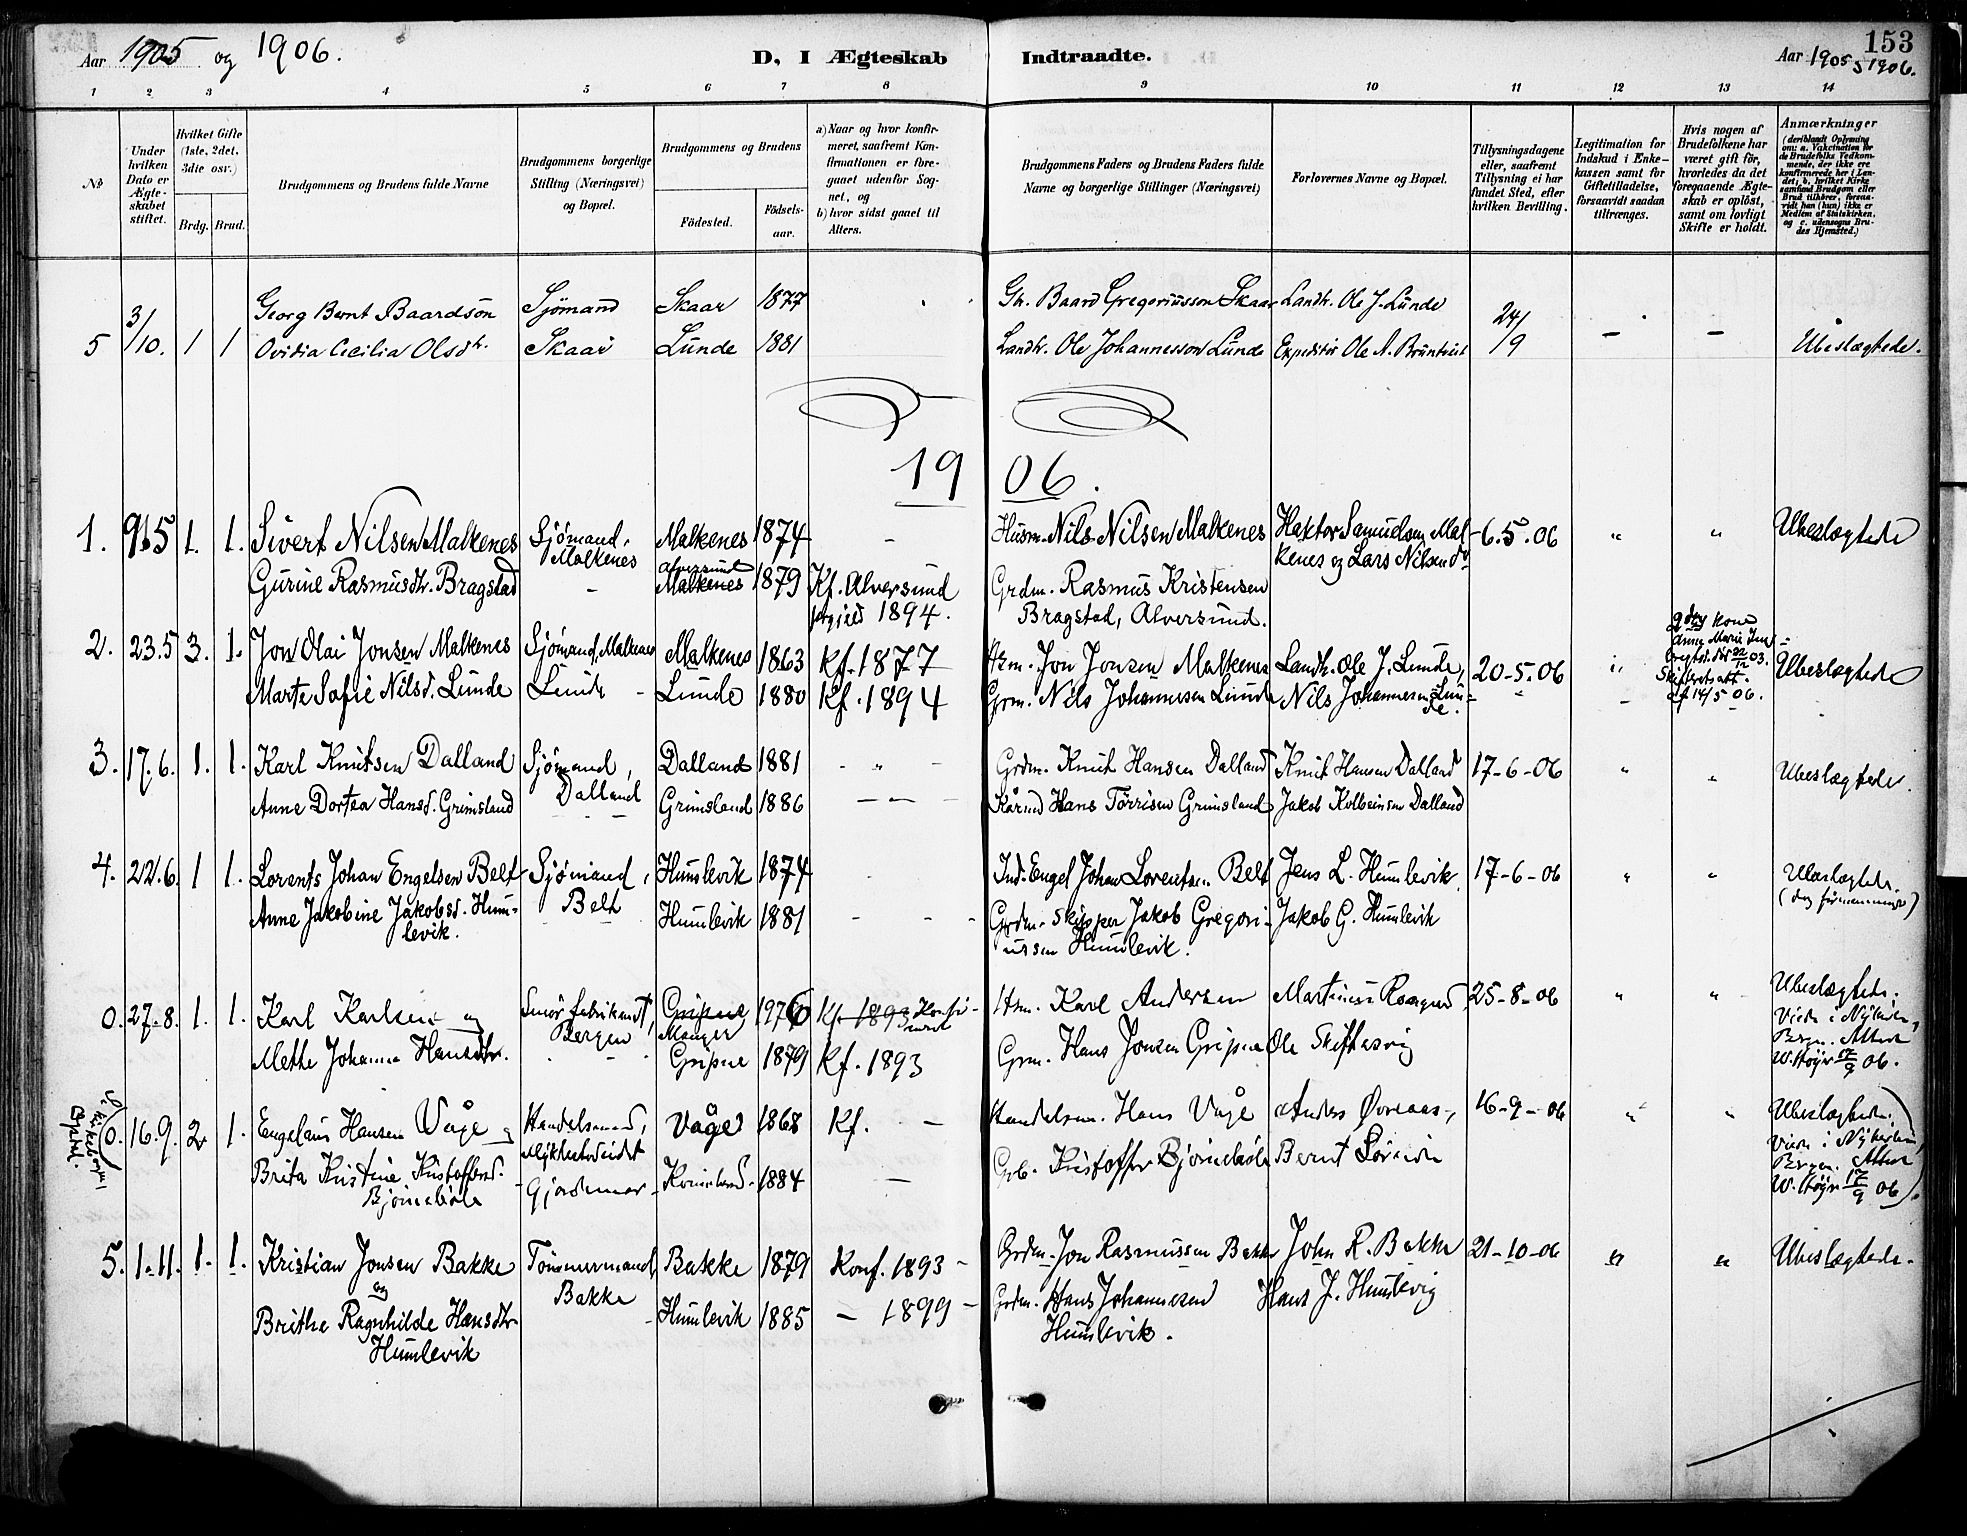 153
Aar 1905 og 1906.
D, I Ægteskab Indtraadte.
Aar 1905 1906.
1 2 3 4 5 6 7 8 9 10 11 12 13 14
No
Under hvilken Dato er Ægteskabet stiftet.
Hvilket Gifte (1ste, 2det, 3die osv.)
Brdg. Brud.
Brudgommens og Brudens fulde Navne
Brudgommens borgerlige Stilling (Næringsvei) og Bopæl.
Brudgommens og Brudens
Fødested.
Fødselsaar.
a) Naar og hvor konfirmeret, saafremt Konfirmationen er foregaaet udenfor Sognet, og
b) hvor sidst gaaet til Alters.
Brudgommens Faders og Brudens Faders fulde Navne og borgerlige Stillinger (Næringsvei)
Forlovernes Navne og Bopæl.
Tillysningsdagene eller, saafremt Tillysning ei har fundet Sted, efter hvilken Bevilling.
Legitimation for Indskud i Enkekassen samt for Giftetilladelse, forsaavidt saadan tiltrænges.
Hvis nogen af Brudefolkene har været gift før, hvorledes da det foregaaende Ægteskab er opløst, samt om lovligt Skifte er holdt.
Anmærkninger
(deriblandt Oplysning om: a. Vakcination for de Brudefolks Vedkommende, der ikke ere konfirmerede her i Landet; b. hvilket Kirkesamfund Brudgom eller Brud tilhører, forsaavidt han (hun) ikke er Medlem af Statskirken, og c. udensogns Brudes Hjemsted.)
5 3/10. 1 1 Georg Bernt Baardsøn Sjømand Skaar 1877 Baard Gregoriusson Skaar Landh. Ole J. Lunde 24/9 – –
Ovidia Cecilia Olsdr. Skaar Lunde 1881 Landh. Ole Johannesson Lunde Expeditør Ole A. Ubeslægtede.
1906.
1. 9.5 1. 1. Sivert Nilsen Malkenes Sjømand, Malkenes Malkenes 1874 - Husm. Nils Nilsen Malkenes Hektor Samuelsen Malkenes og Lars Nilsen do 6.5.06 " " Ubeslægtede
Gurine Rasmusdtr. Bragstad - Alversund Malkenes 1879 Kf. Alversund prgjeld 1894. Grdm. Rasmus Kristensen
Bragstad, Alversund.
2. 23.5 3. 1. Jon Olai Jonsen Malkenes Sjømand, Malkenes Malkenes 1863 Kf. 1877 Hsm. Jon Jonsen Malkenes Landh. Ole J. Lunde, 20-5-06 " Ubeslægtede
Marte Sofie Nilsd. Lunde Lunde - Lunde 1880 Kf. 1894 Grm. Nils Johannesen Lunde Nils Johannesen Lunde.
kone Anne Marie død 22/12 03. Skifteretsatt. af 14/5 06.
3. 17.6. 1. 1. Karl Knutsen Dalland Sjømand, Dalland Dalland 1881 - " - Grdm. Knut Hansen Dalland Knut Hansen Dalland 17-6-06 " " Ubeslægtede.
Anne Dortea Hansd. Grimsland Grimsland 1886 - - - Kårmd Hans Tørrisen Grimsland Jakob Kolbeinsen Dalland
4. 22.6. 1 1. Lorents Johan Engelsen Belt Sjømand, Belt Humlevik 1874 - Ind. Engel Johan Lorentsen Belt Jens L. Humlevik 17-6-06 " " Ubeslægtede.
Anne Jakobine Jakobsd. Humlevik. Humlevik 1881 - - - Grdm. Skipper Jakob Gregoriussen Humlevik. Jakob G. Humlevik
0. 27-8. 1. 1. Karl Karlsen og Smørfabrikant, Bergen Gripne Manger 1976 Kf. 1893 Hsm. Karl Andersen Martinus 25-8-06 " " Ubeslægtede.
Mette Johanne Hansdtr. Gripne 1879 Kf. 1893 Grm. Hans Jonsen Gripne Ole Skiftesvig
Viede i Nykirken, Bergen. Attest W. Støyr 17/9 06.
0. 16.9. 2. 1. Engelaus Hansen Våge og Handelsmand, Våge 1868 Kf. - Handelsm. Hans Våge Anders Øvreaas, 16-9-06 " " Ubeslægtede.
Brita Kristine Kristoffersd. Bjørnebøle 1884 - Grb. Kristoffer Bjørnebøle Bernt
Viede i Nykirken, Bergen. Attest W. Støyr 17/9 06.
5. 1-11. 1. 1. Kristian Jonsen Bakke Tømmermand, Bakke Bakke 1879 Konf. 1893 - Grdm. Jon Rasmussen Bakke John R. Bakke 21-10-06 " " Ubeslægtede.
og
Brithe Ragnhilde Hansdtr Humlevik Humlevik 1885 - 1899 - Grdm. Hans Johannesen Humlevik. Hans J. Humlevig